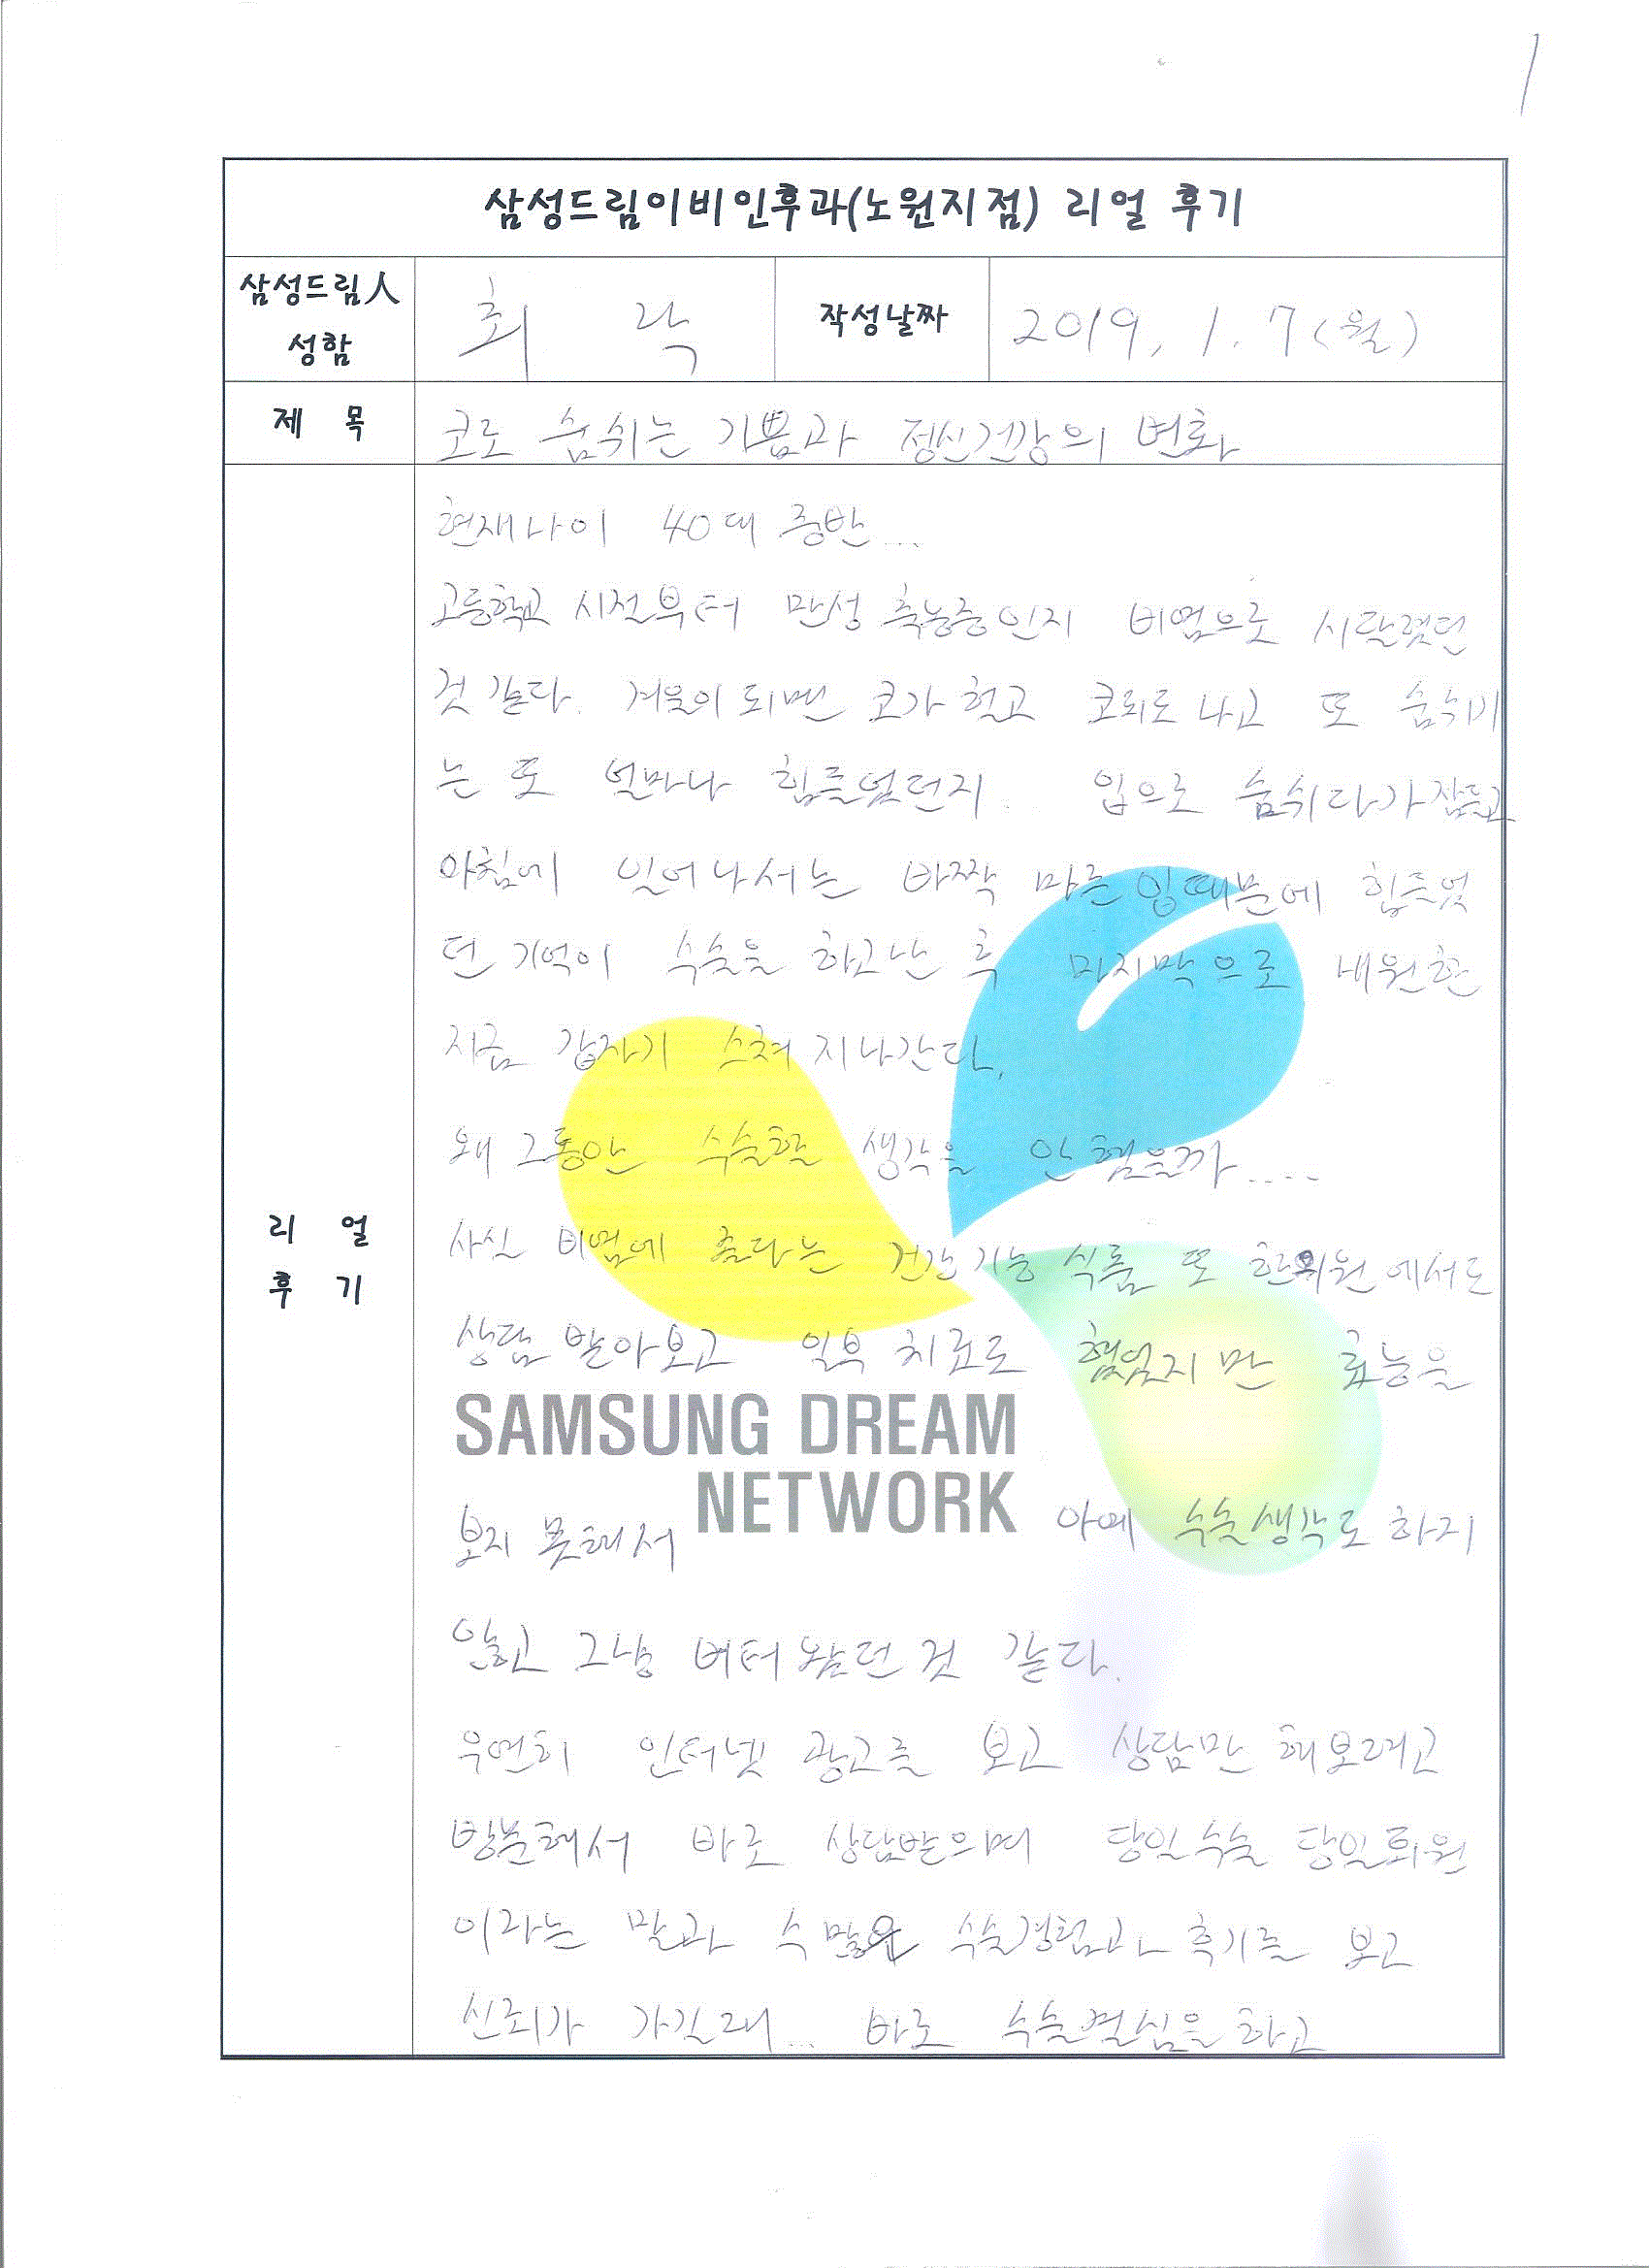 1
삼성드림이비인후과(노원지점) 리얼 후기
삼성드림人
성함
최 락
작성날짜
2019. 1. 7 (월)
제 목
코로 숨쉬는 기쁨과 정신건강의 변화
현재나이 40대 중반...
고등학교 시절부터 만성 축농증인지 비염으로 시달렸던
것 같다. 겨울이 되면 코가 헐고 코피도 나고 또 숨쉬기
는 또 얼마나 힘들었던지.. 입으로 숨쉬다가 잠들고
아침에 일어나서는 바짝 마른 입때문에 힘들었
던 기억이 수술을 하고난 후 마지막으로 내원한
지금 갑자기 스쳐 지나간다.
왜 그동안 수술할 생각을 안 했을까....
리 얼
후 기
사실 비염에 좋다는 건강기능 식품 또 한의원에서도
상담 받아보고 일부 치료도 했었지만 효능을
SAMSUNG DREAM
NETWORK
보지 못해서 아예 수술생각도 하지
않고 그냥 버텨 왔던 것 같다.
우연히 인터넷 광고를 보고 상담만 해보려고
방문해서 바로 상담받으며 당일수술 당일퇴원
이라는 말과 수 많은 수술경험과 후기를 보고
신뢰가 가길래... 바로 수술결심을 하고